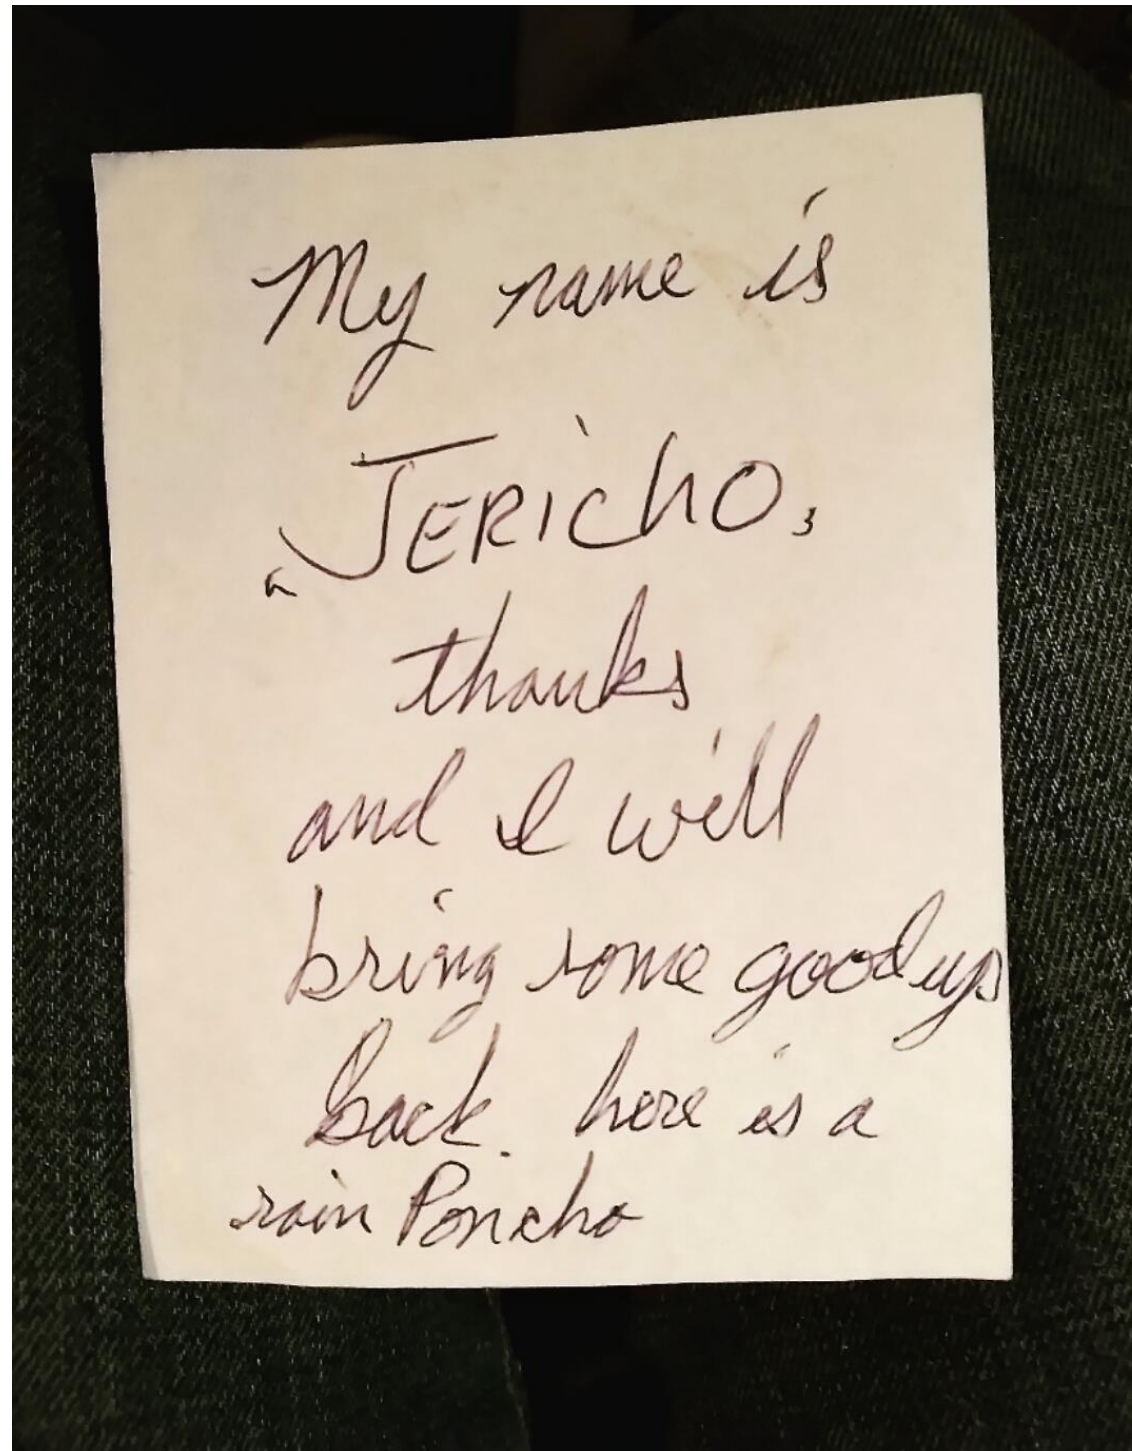 My name is
"JERICHO,
thanks
and I will
bring some goodys
back. here is a
rain Poncho